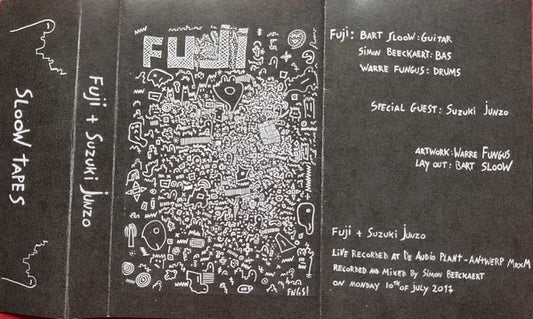 SLOOW TAPES
Fuji + Suzuki Junzo
FUJI
FNGS!
Fuji: BART SLOOW: GUITAR
SIMON BEECKAERT: BAS
WARRE FUNGUS: DRUMS
SPECIAL GUEST: SUZUKI JUNZO
ARTWORK: WARRE FUNGUS
LAY OUT: BART SLOOW
Fuji + Suzuki Junzo
LIVE RECORDED AT DE AUDIO PLANT - ANTWERP
RECORDED AND MIXED BY SIMON BEECKAERT
ON MONDAY 10TH OF JULY 2017